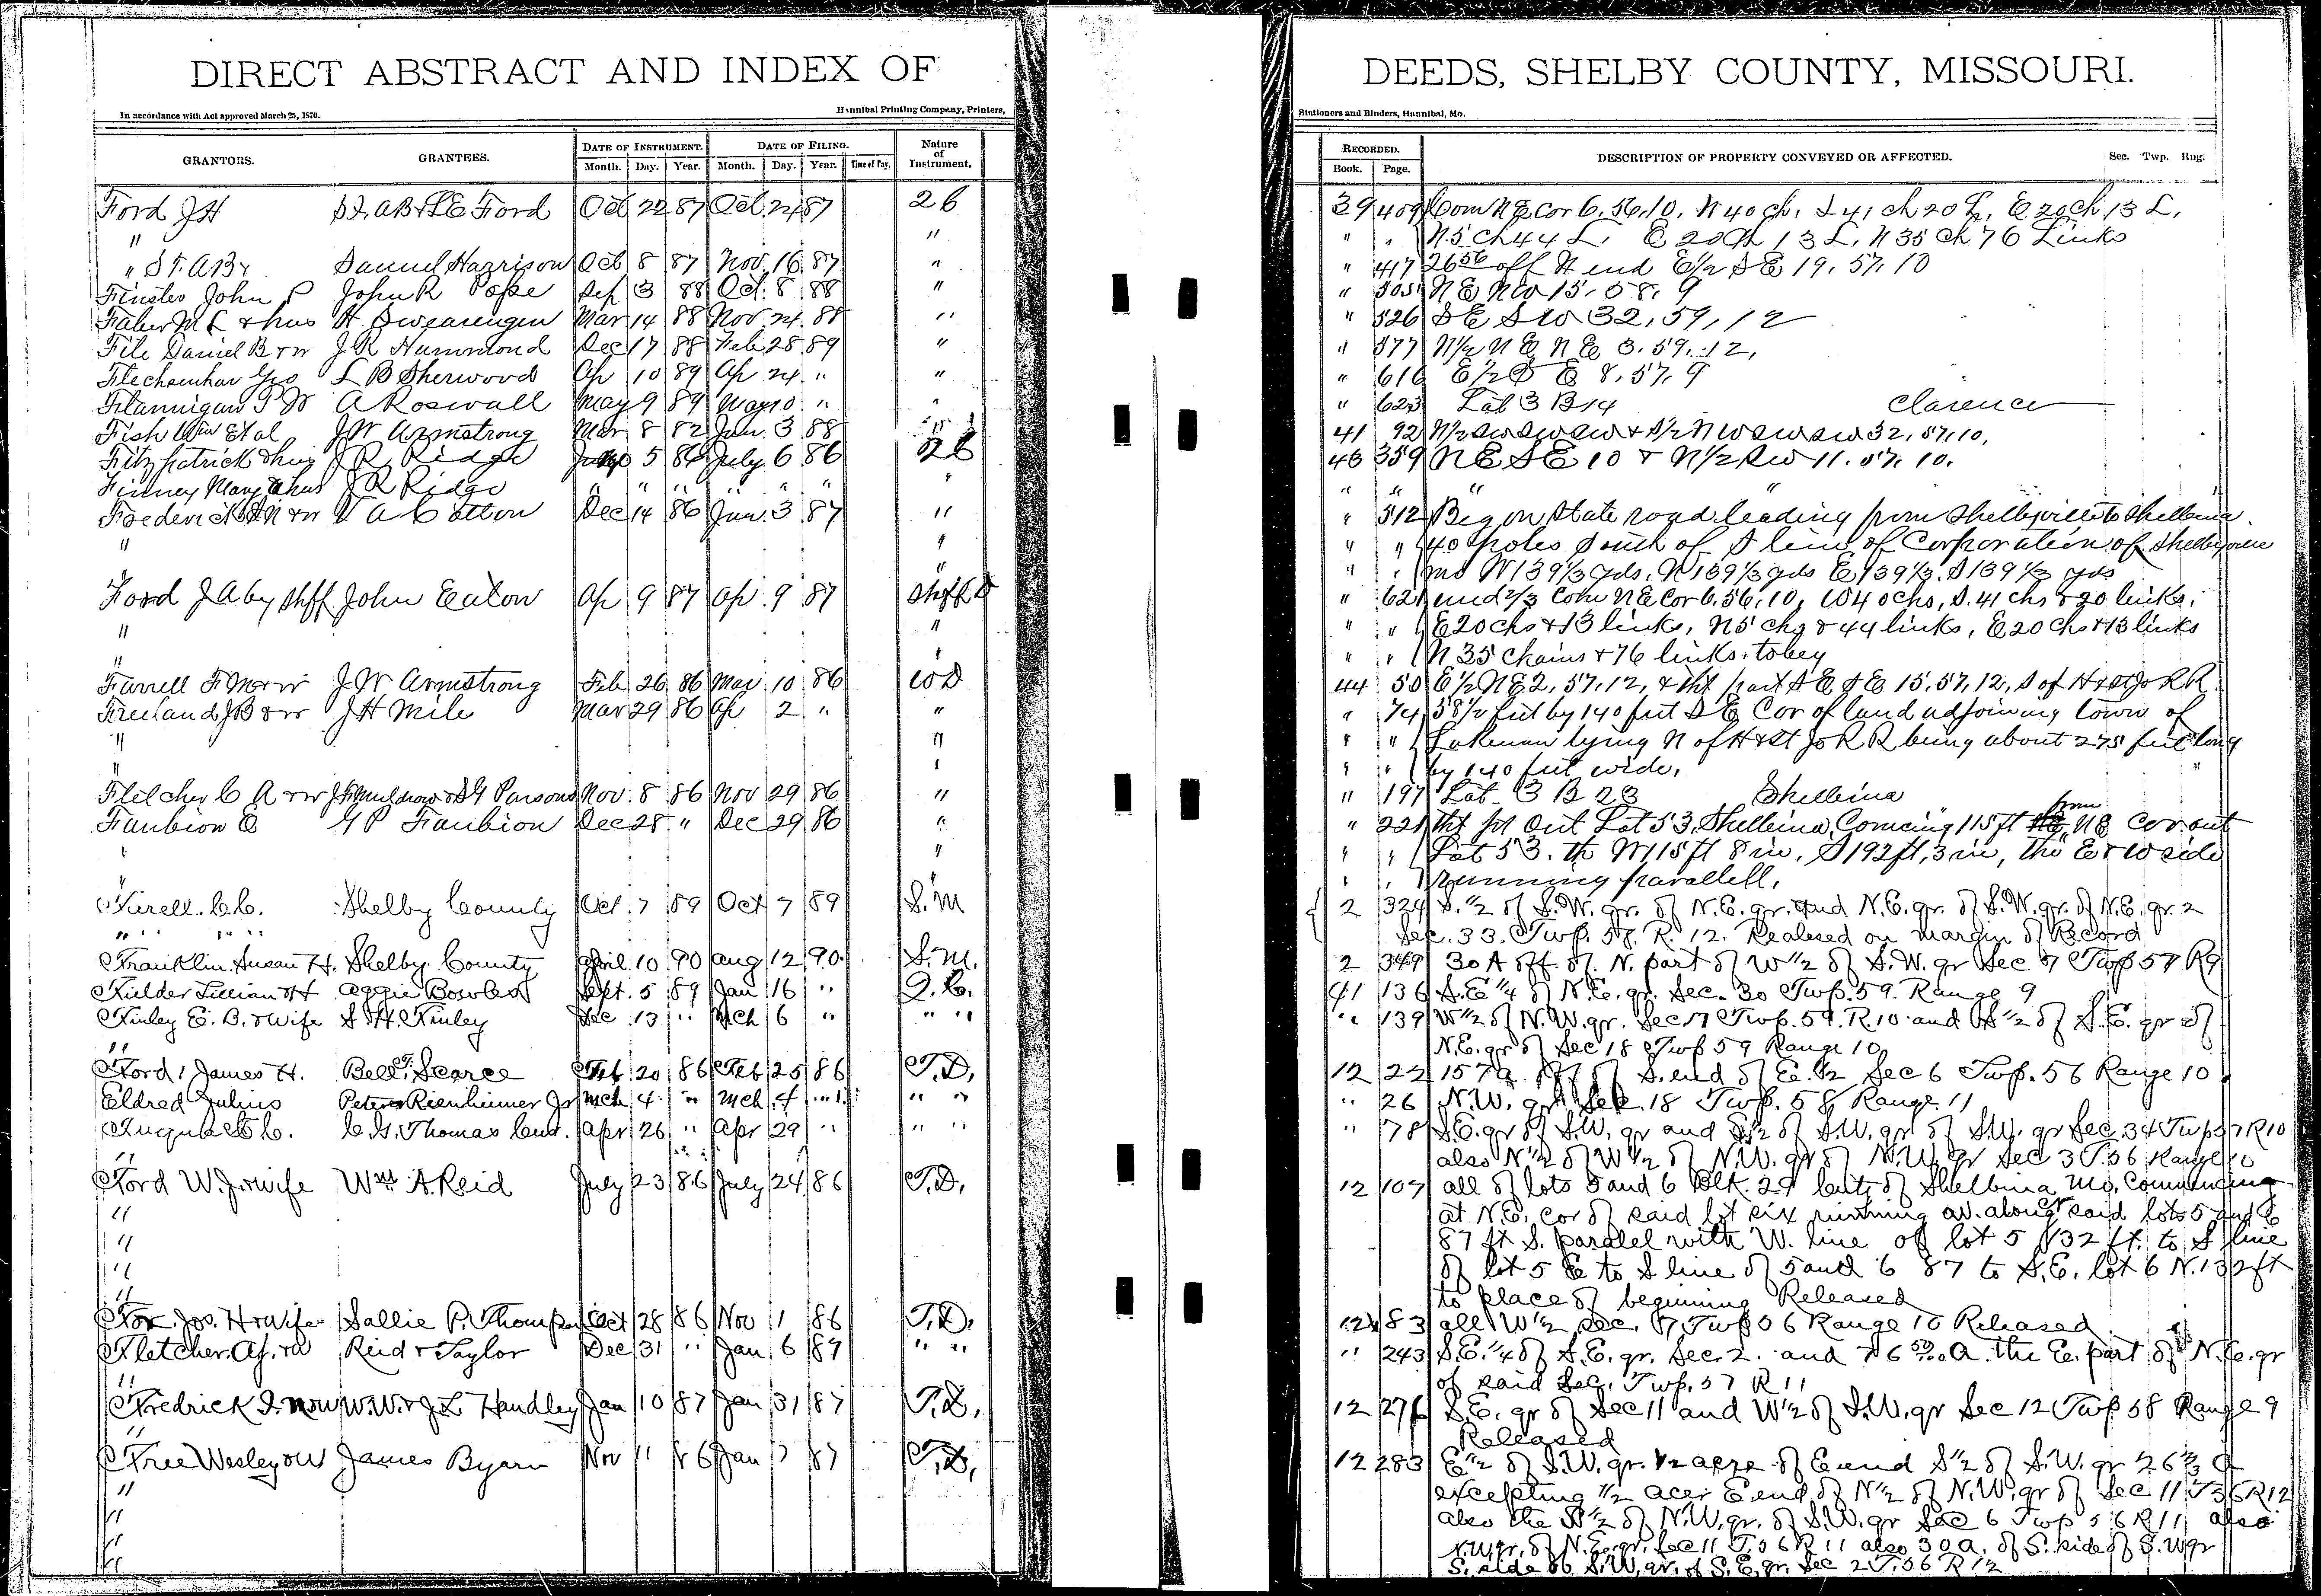 DIRECT ABSTRACT AND INDEX OF DEEDS, SHELBY COUNTY, MISSOURI.
In accordance with Act approved March 25, 1870. Hannibal Printing Company, Printers, Stationers and Binders, Hannibal, Mo.
GRANTORS. GRANTEES. DATE OF INSTRUMENT. DATE OF FILING. Nature of Instrument. RECORDED. DESCRIPTION OF PROPERTY CONVEYED OR AFFECTED. Sec. Twp. Rng.
Month. Day. Year. Month. Day. Year. Time of Day. Book. Page.
Ford J H Ford Oct 22 87 Oct 24 87 26 39 409 Com N E Cor 6. 56. 10. W 40 ch, S 41 ch 20 L, E 20 ch 13 L,
" " " " N 5 ch 44 L. E 20 Ch 13 L, N 35 Ch 76 Links
" Samuel Harrison Oct 8 87 Nov 16 87 " " 417 26 56 off N end E 1/2 S E 19. 57. 10
Finster John P John R Pope Sep 3 88 Oct 8 88 " " 505 N E N W 15. 58. 9
Faber M L & hus H Swearengen Mar 14 88 Nov 24 88 " " 526 S E S W 32, 59, 12
File Daniel B & w J R Hammond Dec 17 88 Feb 28 89 " " 577 N 1/2 N E N E 3. 59. 12,
Flechsenhar Geo L B Sherwood Ap 10 89 Ap 24 " " " 616 E 1/2 S E 8. 57. 9
Flannigan P W A Roswall May 9 89 May 10 " " " 623 Lot 3 B 14 Clarence
Fish Wm Et al J W Armstrong Mar 8 82 Jan 3 88 " 41 92 N 1/2 SW SW SW & S 1/2 N W SW SW 32, 57, 10,
Fitzpatrick & hus J R Ridge 5 86 July 6 86 26 46 359 N E S E 10 & N 1/2 S W 11. 57. 10.
Finney Mary & hus J R Ridge " " " " " " " " " "
Frederick & w V A Cotton Dec 14 86 Jan 3 87 " " 512 Beg on State road leading from Shelbyville to Shelbina
" " " " 40 poles South of S line of Corporation of Shelbyville
" " " W 139 1/3 yds, N 139 1/3 yds E 139 1/3. S 139 1/3 yds
Ford J A by shff John Eaton Ap 9 87 Ap 9 87 Shff D " 621 und 2/3 Com N E Cor 6. 56. 10, W 40 chs, S. 41 chs & 20 links,
" " " " E 20 chs & 13 links, N 5 chs & 44 links, E 20 chs & 13 links
" " " " N 35 chains & 76 links. to beg
Farrell F M & w J W Armstrong Feb 26 86 Mar 10 86 W D 44 50 E 1/2 N E 2, 57, 12, & tht part S E S E 15. 57, 12, S of H & St Jo R R
Freeland J B & w J H Mile Mar 29 86 Ap 2 " " " 74 58 1/2 feet by 140 feet S E Cor of land adjoining town of
" " " " Lakenan lying N of H & St Jo R R being about 275 feet long
" " " " by 140 feet wide,
Fletcher C A & w J F Muldrow & S G Parsons Nov 8 86 Nov 29 86 " " 197 Lot 3 B 23 Shelbina
Faubion E G P Faubion Dec 28 " Dec 29 86 " " 221 tht prt Out Lot 53. Shelbina, Comcing 115 ft from N E Cor out
" " " " Lot 53. th W 115 ft 8 in, S 192 ft, 3 in, the E & W side
" " " running parallell,
Furell. C.C. Shelby County Oct 7 89 Oct 7 89 S. M 2 324 S. 1/2 of S.W. qr. of N.E. qr. and N.E. qr. of S.W. qr. of N.E. qr. 2
" " " " Sec. 33. Twp. 58. R. 12. Realesed on margin of Record
Franklin Susan H. Shelby County April 10 90 Aug 12 90. S. M. 2 349 30 A off. of. N. part of W 1/2 of S. W. qr Sec 7 Twp 57 R 9
Fielder Lillian H Aggie Bowles Sept 5 89 Jan 16 " Q. C. 41 136 S. E 1/4 of N. E. qr. Sec. 30 Twp. 59. Range 9
Finley E. B. & wife S. H. Finley Dec 13 " Mch 6 " " " " 139 W 1/2 of N. W. qr. Sec 17 Twp. 59. R. 10 and S 1/2 of S. E. qr of
" N. E. qr of Sec 18 Twp 59 Range 10
Ford, James H. Bell T. Scarce Feb 20 86 Feb 25 86 T. D. 12 22 157 a. off of S. end of E. 1/2 Sec 6 Twp. 56 Range 10
Eldred Julius Peter Rienheimer Jr Mch 4 " Mch 4 " " " " 26 N. W. qr Sec. 18 Twp. 58 Range. 11
C. G. Thomas Apr 26 " Apr 29 " " " " 78 S. E. qr of S. W. qr and S 1/2 of S. W. qr of S. W. qr Sec 34 Twp 57 R 10
" also N 1/2 of W 1/2 of N. W. qr of N. W. qr Sec 3 T. 56 Range 10
Ford W. J. & wife Wm A. Reid July 23 86 July 24 86 T. D. 12 107 all of lots 5 and 6 Blk. 29 City of Shelbina Mo. Commencing
" at N. E. cor of said lot six running W. along said lots 5 and 6
" 87 ft S. paralel with W. line of lot 5 132 ft. to S line
" of lot 5 E to S line of 5 and 6 87 to S. E. lot 6 N. 132 ft
" to place of beginning Released
Fox. Jos. H & wife Sallie P. Thompson Oct 28 86 Nov 1 86 T. D. 12 183 all W 1/2 Sec. 17 Twp 56 Range 10 Released
Fletcher. & w Reid & Taylor Dec 31 " Jan 6 87 " " " 243 S. E. 1/4 of S. E. qr. Sec. 2. and 76 50/100 a. the E. part of N. E. qr
" of said Sec. Twp. 57 R 11
Fredrick W. W. & J. L Handley Jan 10 87 Jan 31 87 T. D. 12 276 S. E. qr of Sec 11 and W 1/2 of S. W. qr Sec 12 Twp 58 Range 9
" Released
Free Wesley & W James Byarn Nov 11 86 Jan 7 87 T. D. 12 283 E 1/2 of S. W. qr. 1/2 acre of E end S 1/2 of S. W. qr 26 2/3 a
" excepting 1/2 acer E end of N 1/2 of N. W. qr of Sec 11 T 56 R 12
" also the N 1/2 of N. W. qr. of S. W. qr Sec 6 Twp 56 R 11 also
" N. W. qr. of N. E. qr. Sec 11 T. 56 R 11 also 30 a. of S. side of S. W qr
" S. side of S. W. qr. of S. E. qr. Sec 2 T. 56 R 12